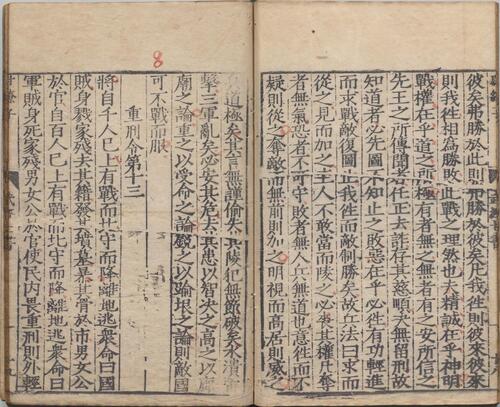 彼矣弗勝於此則弗勝於彼矣凡我徃則彼來彼來
則我徃相為勝敗此戰之理然也夫精誠在乎神明
戰權在乎道之所極有者無之無者有之安所信之
先王之所傳聞者任正去詐存其慈順决無留刑故
知道者必先圖不知止之敗惡在乎必徃有功輕進
而求戰敵復圖止我徃而敵制勝矣故兵法曰求而
從之見而加之主人不敢當而陵之必喪其權凡奪
者無氣恐者不可守敗者無人兵無道也意徃而不
疑則從之奪敵而無前則加之明視而高居則威之
道極矣其言無謹偷矣其陵犯無節破矣水潰
擊三軍亂矣必安其危去其患以智决之高之以廊
廟之論重之以受命之論銳之以踰垠之論則敵國
可不戰而服
8
重刑令第十三
將自千人已上有戰而北守而降離地逃衆命曰國
賊身戮家殘去其籍發其墳墓暴其骨於市男女公
於官自百人已上有戰而北守而降離地逃衆命曰
軍賊身死家殘男女公於官使民内畏重刑則外輕